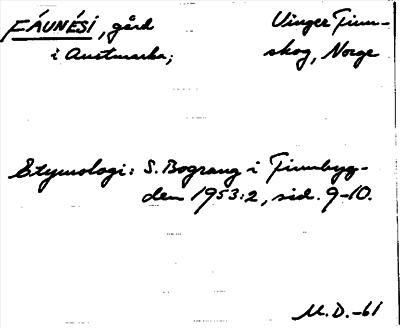 FÁUNÉSI, gård
i Austmarka;
Vinger Finn-
skog, Norge
Etymologi: S. Bograng i Finnbyg-
den 1953:2, sid. 9-10.
M.D.-61